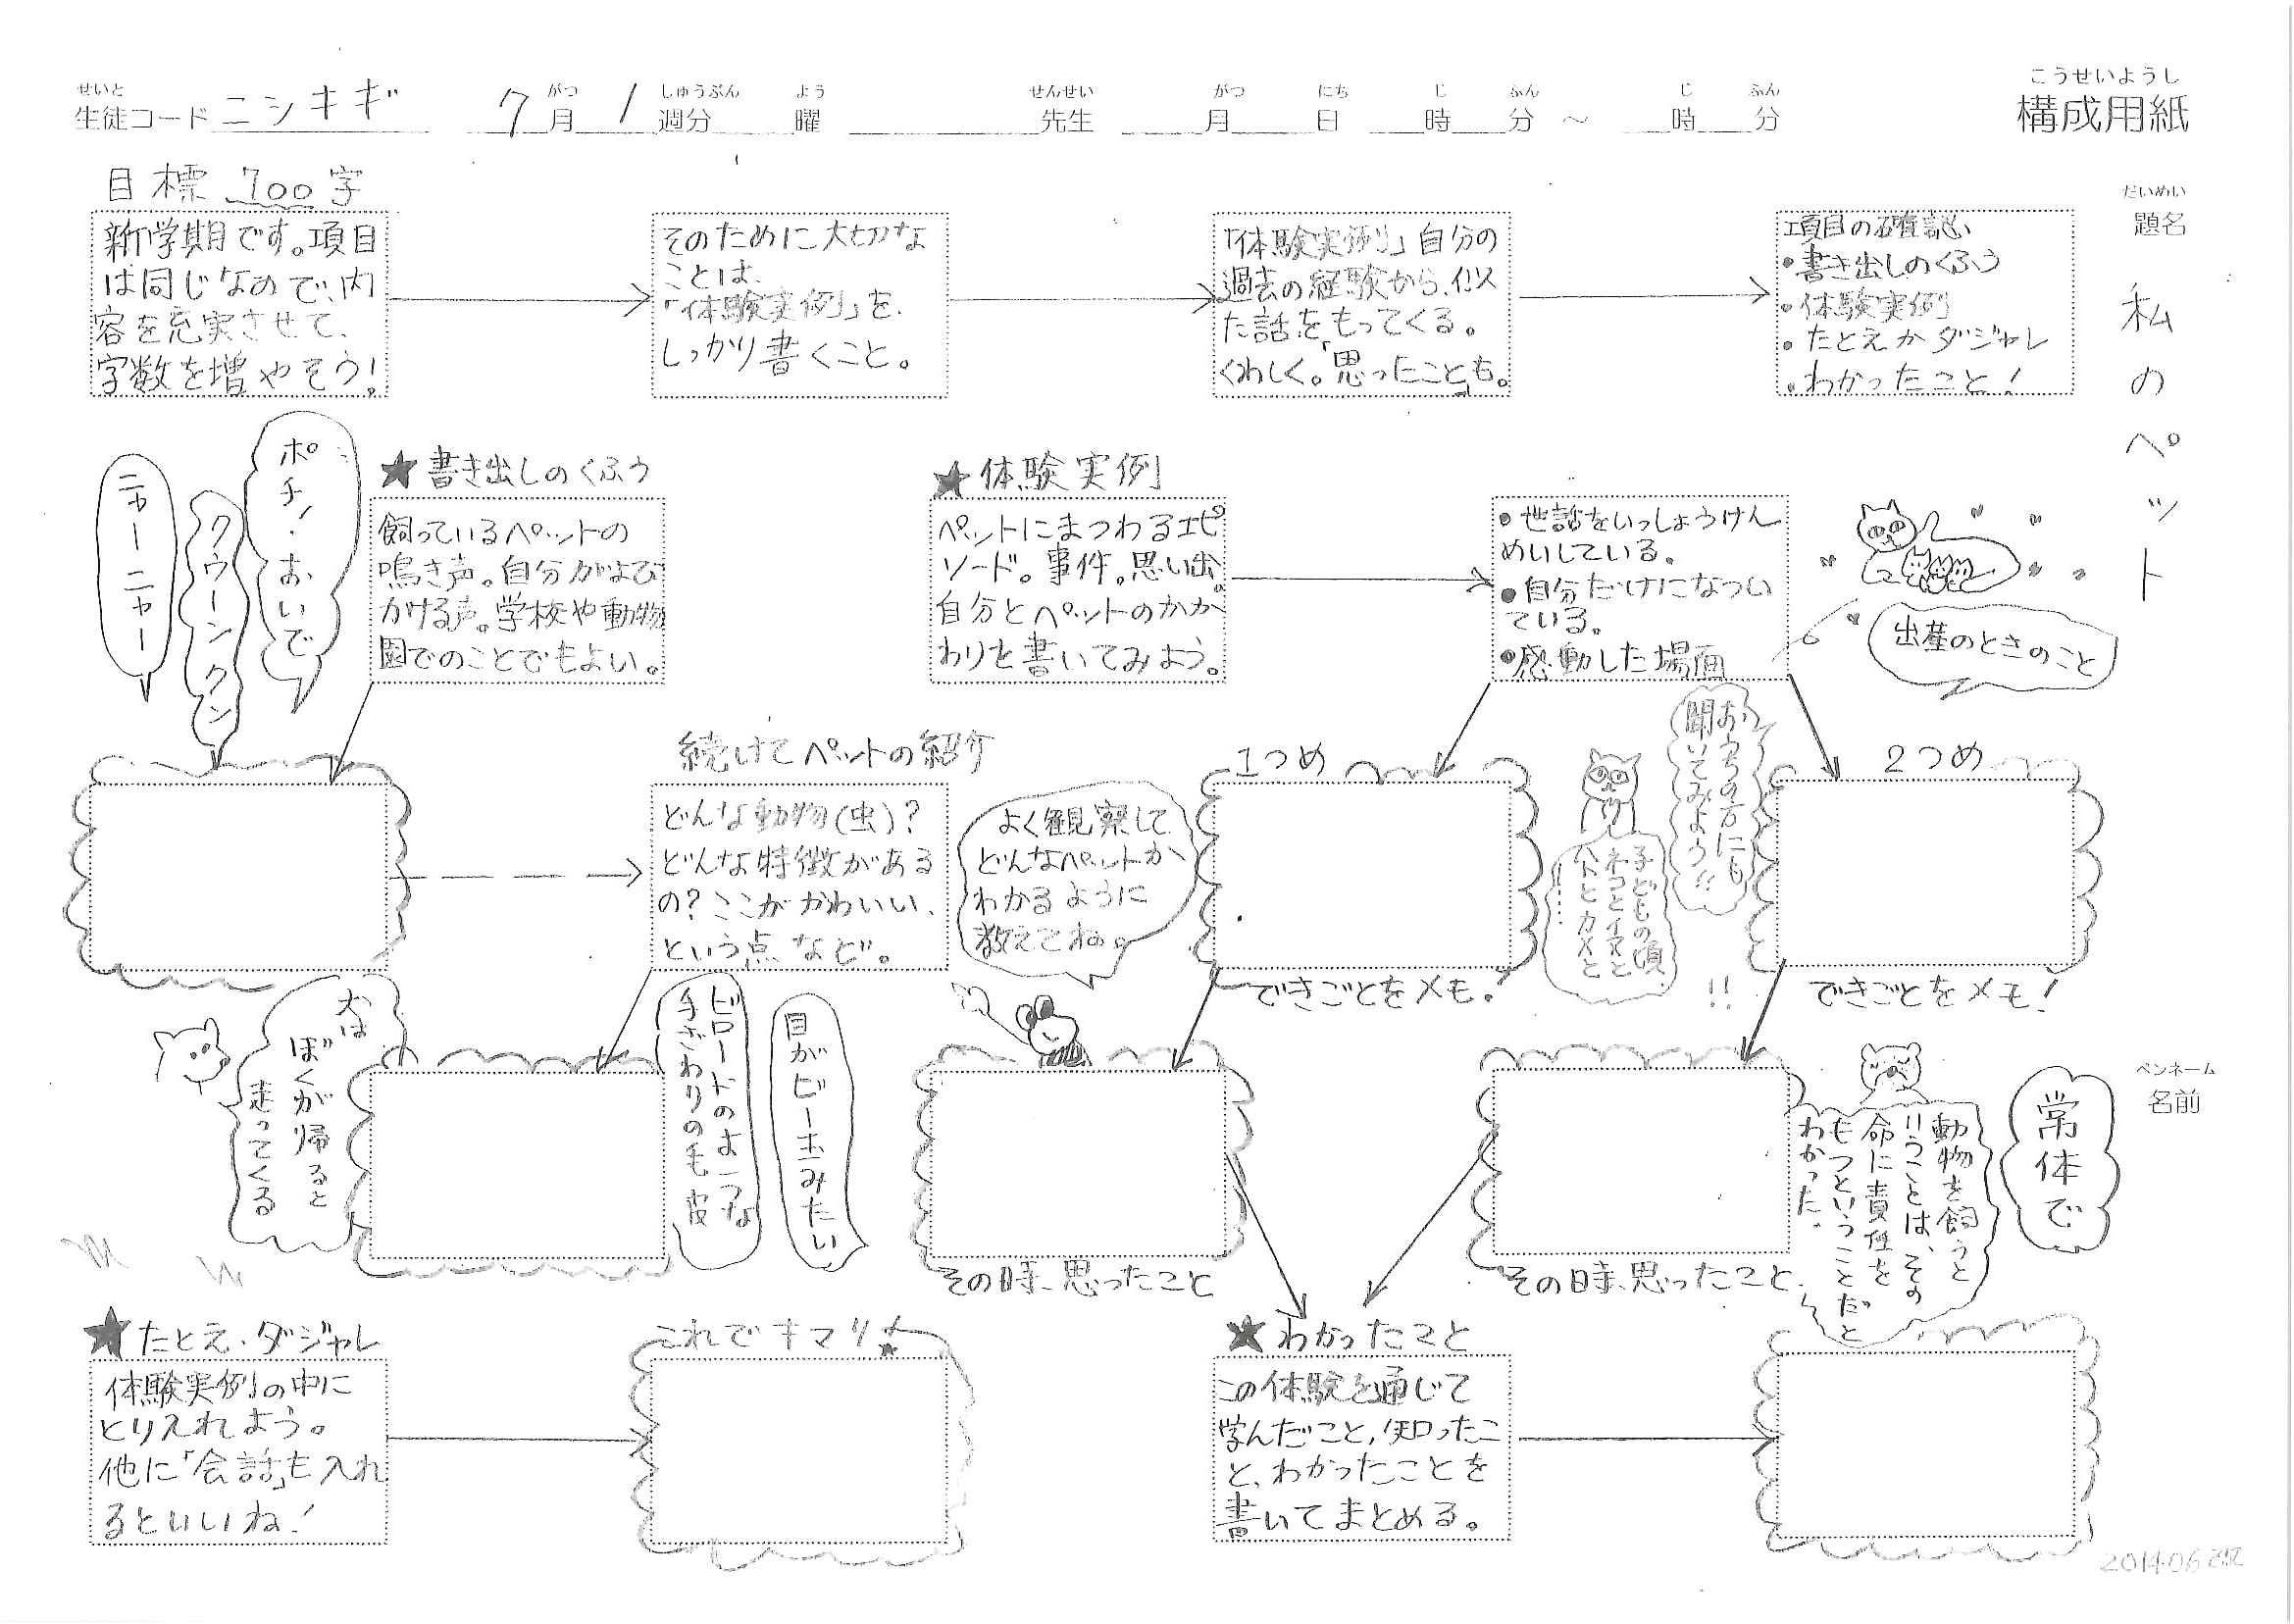 せいと
生徒コード ニシキギ 7月 1週分 曜 先生 月 日 時 分 ～ 時 分
がつ しゅうぶん よう せんせい がつ にち じ ふん じ ふん
こうせいようし
構成用紙
だいめい
題名
私のペット
目標 700字
新学期です。項目
は同じなので、内
容を充実させて、
字数を増やそう！
そのために大切な
ことは、
「体験実例」を、
しっかり書くこと。
「体験実例」自分の
過去の経験から、似
た話をもってくる。
くわしく。「思ったこと」も。
項目の確認
・書き出しのくふう
・体験実例
・たとえかダジャレ
・わかったこと！
ポチ！おいで
クウーンクン
ニャーニャー
★書き出しのくふう
飼っているペットの
鳴き声。自分がよび
かける声。学校や動物
園でのことでもよい。
★体験実例
ペットにまつわるエピ
ソード。事件。思い出。
自分とペットのかか
わりを書いてみよう。
・世話をいっしょうけん
めいしている。
・自分だけになつい
ている。
・感動した場面
出産のときのこと
続けてペットの紹介
どんな動物(虫)？
どんな特徴がある
の？ここがかわいい、
という点など。
よく観察して
どんなペットか
わかるように
教えてね。
1つめ
できごとをメモ！
おうちの方にも
聞いてみよう!!
子どもの頃
ネコとイヌと
ハトとカメと
……!!
2つめ
できごとをメモ！
犬は
ぼくが帰ると
走ってくる
ビロードのような
手ざわりの毛皮
目がビー玉みたい
その時、思ったこと
その時、思ったこと
動物を飼うと
いうことは、その
命に責任を
もつということだと
わかった。
常体で
ペンネーム
名前
★たとえ・ダジャレ
体験実例の中に
とり入れよう。
他に「会話」も入れ
るといいね！
これでキマリ！
★わかったこと
この体験を通じて
学んだこと、知ったこ
と、わかったことを
書いてまとめる。
2014.06